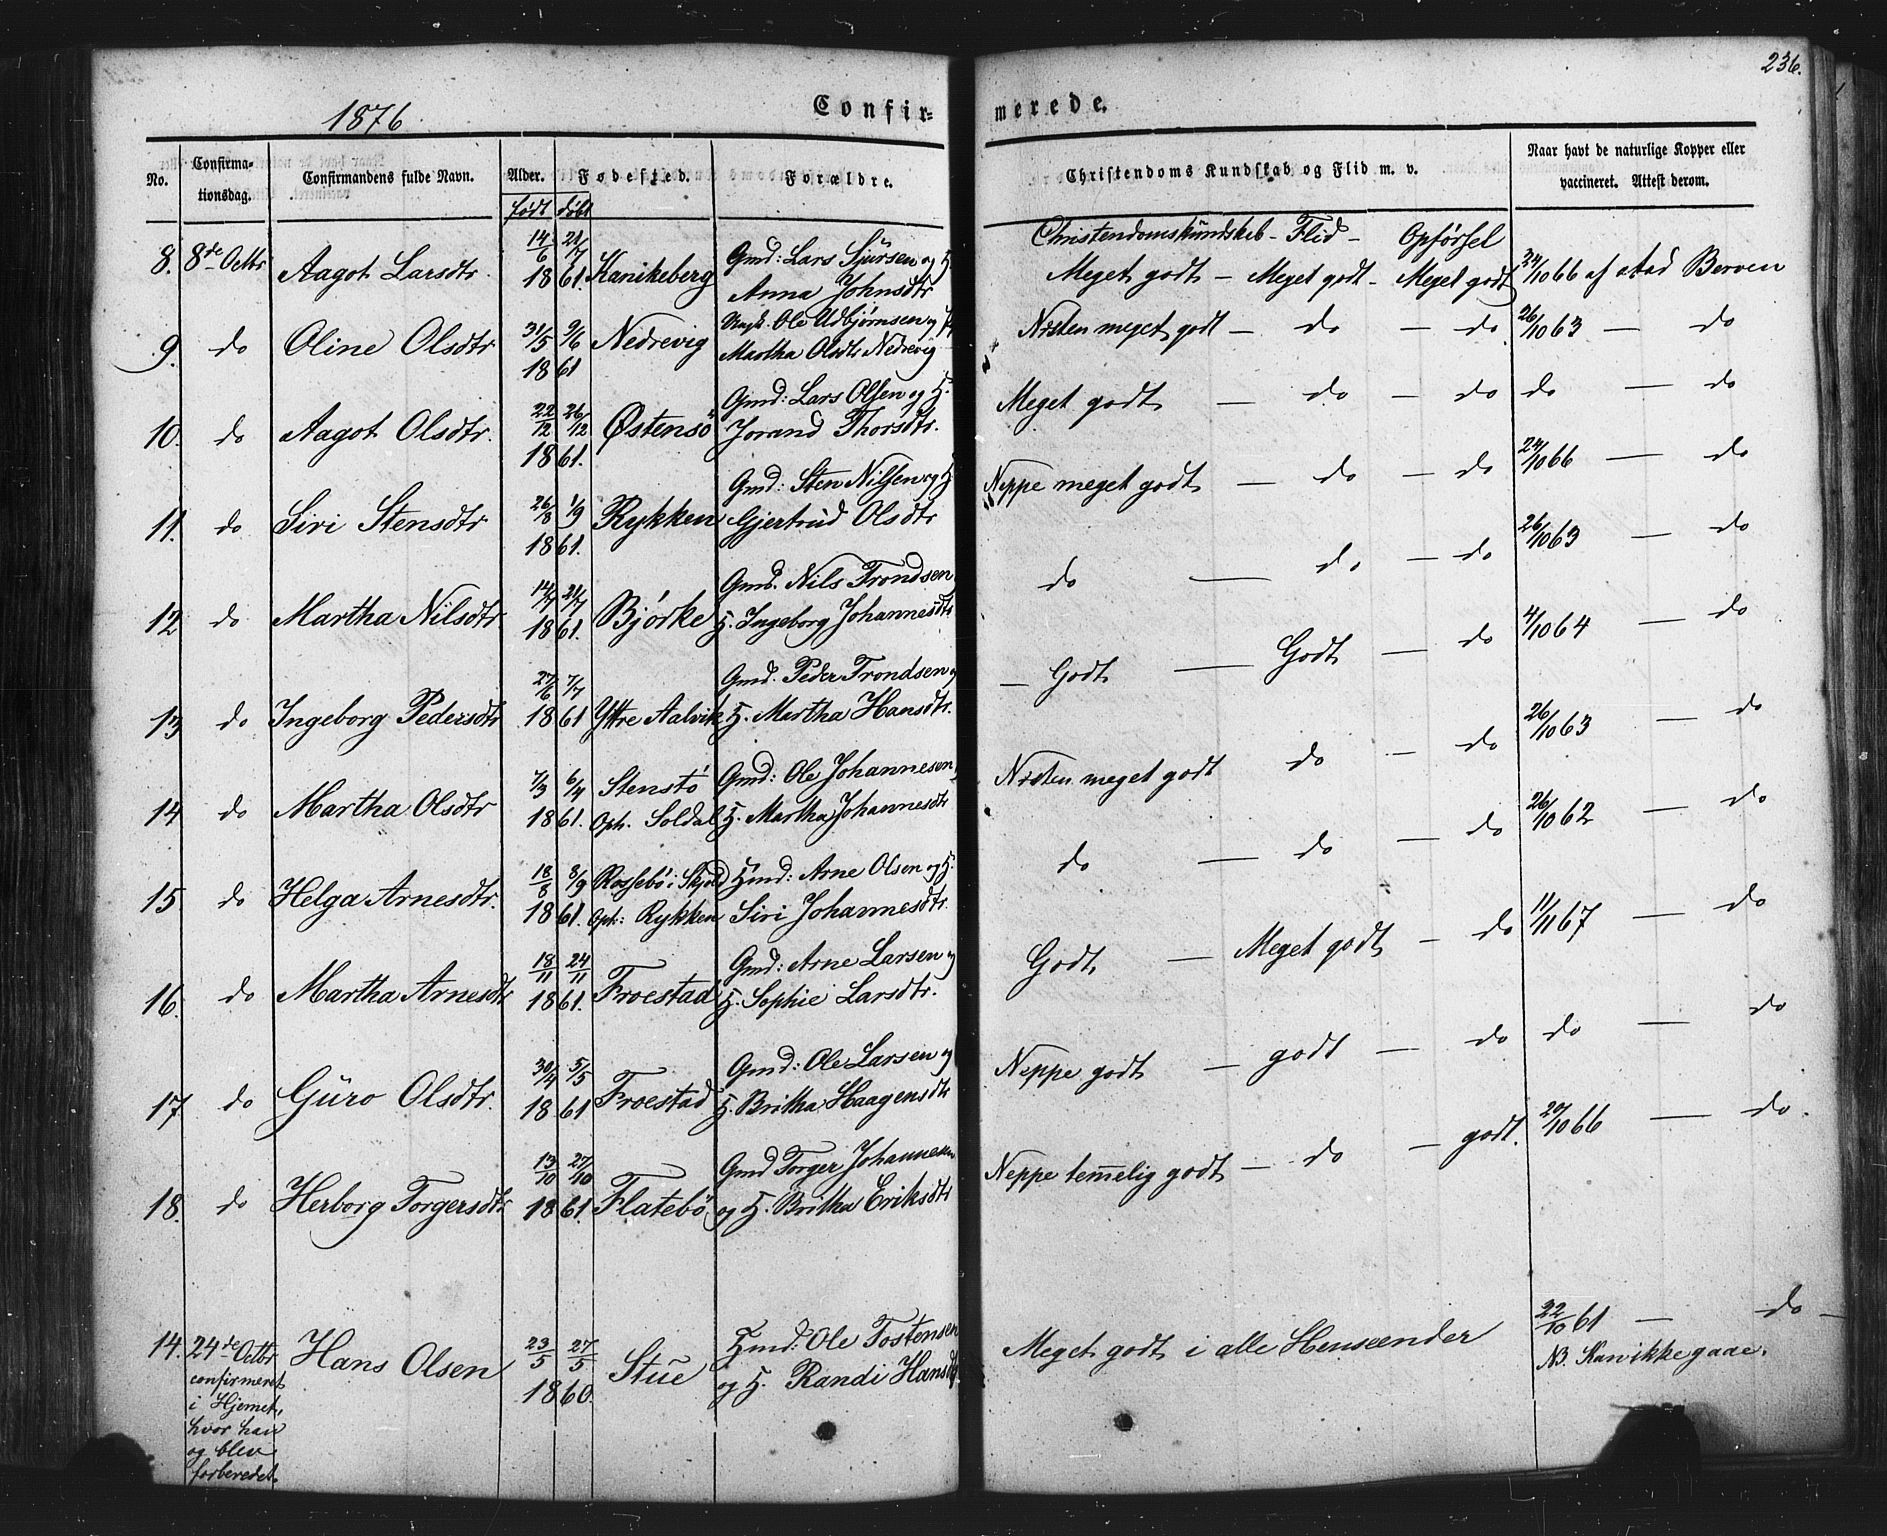 236.
1876.
Confir-
merede.
No.
Confirma-
tionsdag.
Confirmandens fulde Navn.
Alder.
Fødested.
Forældre.
Christendoms Kundskab og Flid m. v.
Naar havt de naturlige Kopper eller
vaccineret. Attest derom.
født
døbt
Christendomskundskab - Flid - Opførsel
8. 8de Octbr Aagot Larsdtr. 14/6 21/7 1861. Kanikeberg Gmd: Lars Sjursen og H.
Anna Johnsdtr
Meget godt - Meget godt - Meget godt 24/10 66 af Berven
9. do Oline Olsdtr 31/5 9/6 1861 Nedrevig Ole Udbjørnsen og
Martha Olsdtr Nedrevig
Næsten meget godt - do - do 26/10 63 - do
10. do Aagot Olsdtr. 22/12 26/12 1861. Østensö Gmd: Lars Olsen og H.
Jorand Thorsdtr.
Meget godt - do - do do - do
11. do Siri Stensdtr 26/8 1/9 1861. Rykken Gmd: Sten Nilsen og H.
Gjertrud Olsdtr
Neppe meget godt - do - do 24/10 66 - do
12. do Martha Nilsdtr. 14/7 21/7 1861. Bjørke Gmd. Nils Trondsen
H. Ingeborg Johannesdtr
do - do - do 26/10 63 - do
13. do Ingeborg Pedersdtr 27/6 7/7 1861 Yttre Aalvik Gmd. Peder Trondsen og
H. Martha Hansdtr.
- Godt - Godt - do 4/10 64 - do
14. do Martha Olsdtr 7/3 6/4 1861. Stenstö Gmd: Ole Johannesen
Oph. Soldal H. Martha Johannesdtr
Næsten meget godt do - do 26/10 63 - do
15. do Helga Arnesdtr. 18/8 8/9 1861. Rossebö i Skjold Hmd: Arne Olsen og H.
Oph: Rykken Siri Johannesdtr.
do - do - do 26/10 62 - do
16. do Martha Arnesdtr 18/11 24/11 1861. Froestad Gmd: Arne Larsen og
H. Sophie Larsdtr.
Godt - Meget godt - do 11/11 67 - do
17. do Guro Olsdtr. 30/4 5/5 1861 Froestad Gmd: Ole Larsen og
H. Britha Haagensdtr
Neppe godt - godt - do do - do
18. do Herborg Torgersdtr 13/10 27/10 1861. Flatebö. Gmd Torger Johannesen
og H. Britha Eriksdtr
Neppe temmelig godt - do - godt. 27/10 66 - do.
14. 24de Octbr Hans Olsen 23/5 27/5 1860. Stue Hmd: Ole Tostensen
og H. Randi Hansdtr.
confirmeret
i Hjemet,
hvor han
og blev
forberedet.
Meget godt i alle Henseender
22/10 61 - do -
NB. Kan ikke gaae.